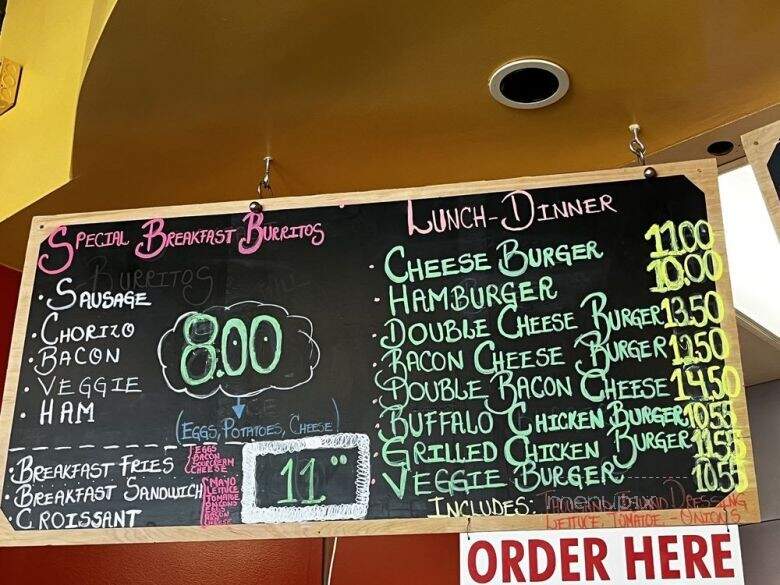 Special Breakfast Burritos
Burritos
• Sausage
• Chorizo
• Bacon
• Veggie
• Ham
8.00
(Eggs, Potatoes, Cheese)
• Breakfast Fries
Eggs
Bacon
Sour Cream
Cheese
• Breakfast Sandwich
Croissant
Mayo
Lettuce
Tomatoe
Bacon
Cheese
11"
Lunch-Dinner
• Cheese Burger 11.00
• Hamburger 10.00
Double Cheese Burger 13.50
• Bacon Cheese Burger 12.50
• Double Bacon Cheese 14.50
• Buffalo Chicken Burger 10.55
• Grilled Chicken Burger 11.55
• Veggie Burger 10.55
Includes: Dressing
Lettuce, Tomatoe - Onions
ORDER HERE